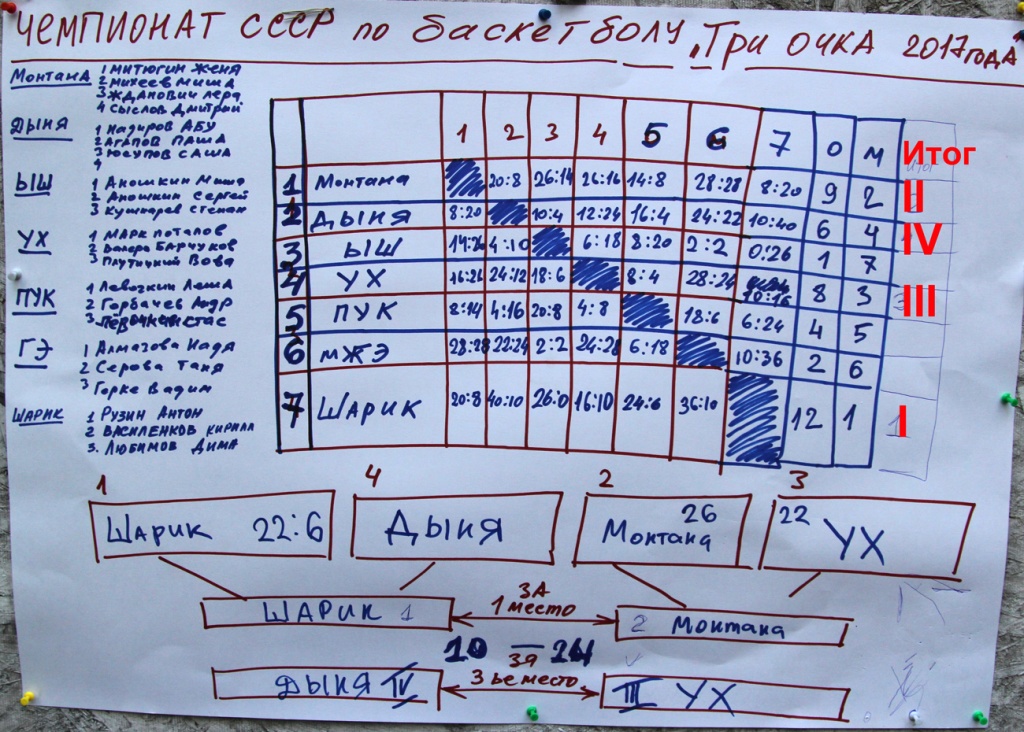 ЧЕМПИОНАТ СССР по баскетболу, Три очка 2017 года
Монтана
1 Митюгин Женя
2 Михеев Миша
3 Жданович Лера
4 Сыслов Дмитрий
Дыня
1 Надиров Абу
2 Агапов Паша
3 Юсупов Саша
4
ЫШ
1 Аношкин Миша
2 Аношкин Сергей
3 Кушнарев Степан
УХ
1 Марк Потапов
2 Валера Барчуков
3 Плутицкий Вова
ПУК
1 Левозкин Леша
2 Горбачев Андр
3 стас
ГЭ
1 Алмазова Надя
2 Серова Таня
3 Горке Вадим
Шарик
1 Рузин Антон
2 Василенков Кирилл
3. Любимов Дима
1 2 3 4 5 6 7 О М Итог
1 Монтана 20:8 26:14 26:16 14:8 28:28 8:20 9 2 II
2 Дыня 8:20 10:4 12:24 16:4 24:22 10:40 6 4 IV
3 ЫШ 14:26 4:10 6:18 8:20 2:2 0:26 1 7
4 УХ 16:26 24:12 18:6 8:4 28:24 10:16 8 3 III
5 ПУК 8:14 4:16 20:8 4:8 18:6 6:24 4 5
6 МЖЭ 28:28 22:24 2:2 24:28 6:18 10:36 2 6
7 Шарик 20:8 40:10 26:0 16:10 24:6 36:10 12 1 I
1 4 2 3
Шарик 22:6 Дыня Монтана 26 22 УХ
ШАРИК 1 ЗА 1 место 2 Монтана
10 — 24
Дыня IV ЗА 3ье место III УХ